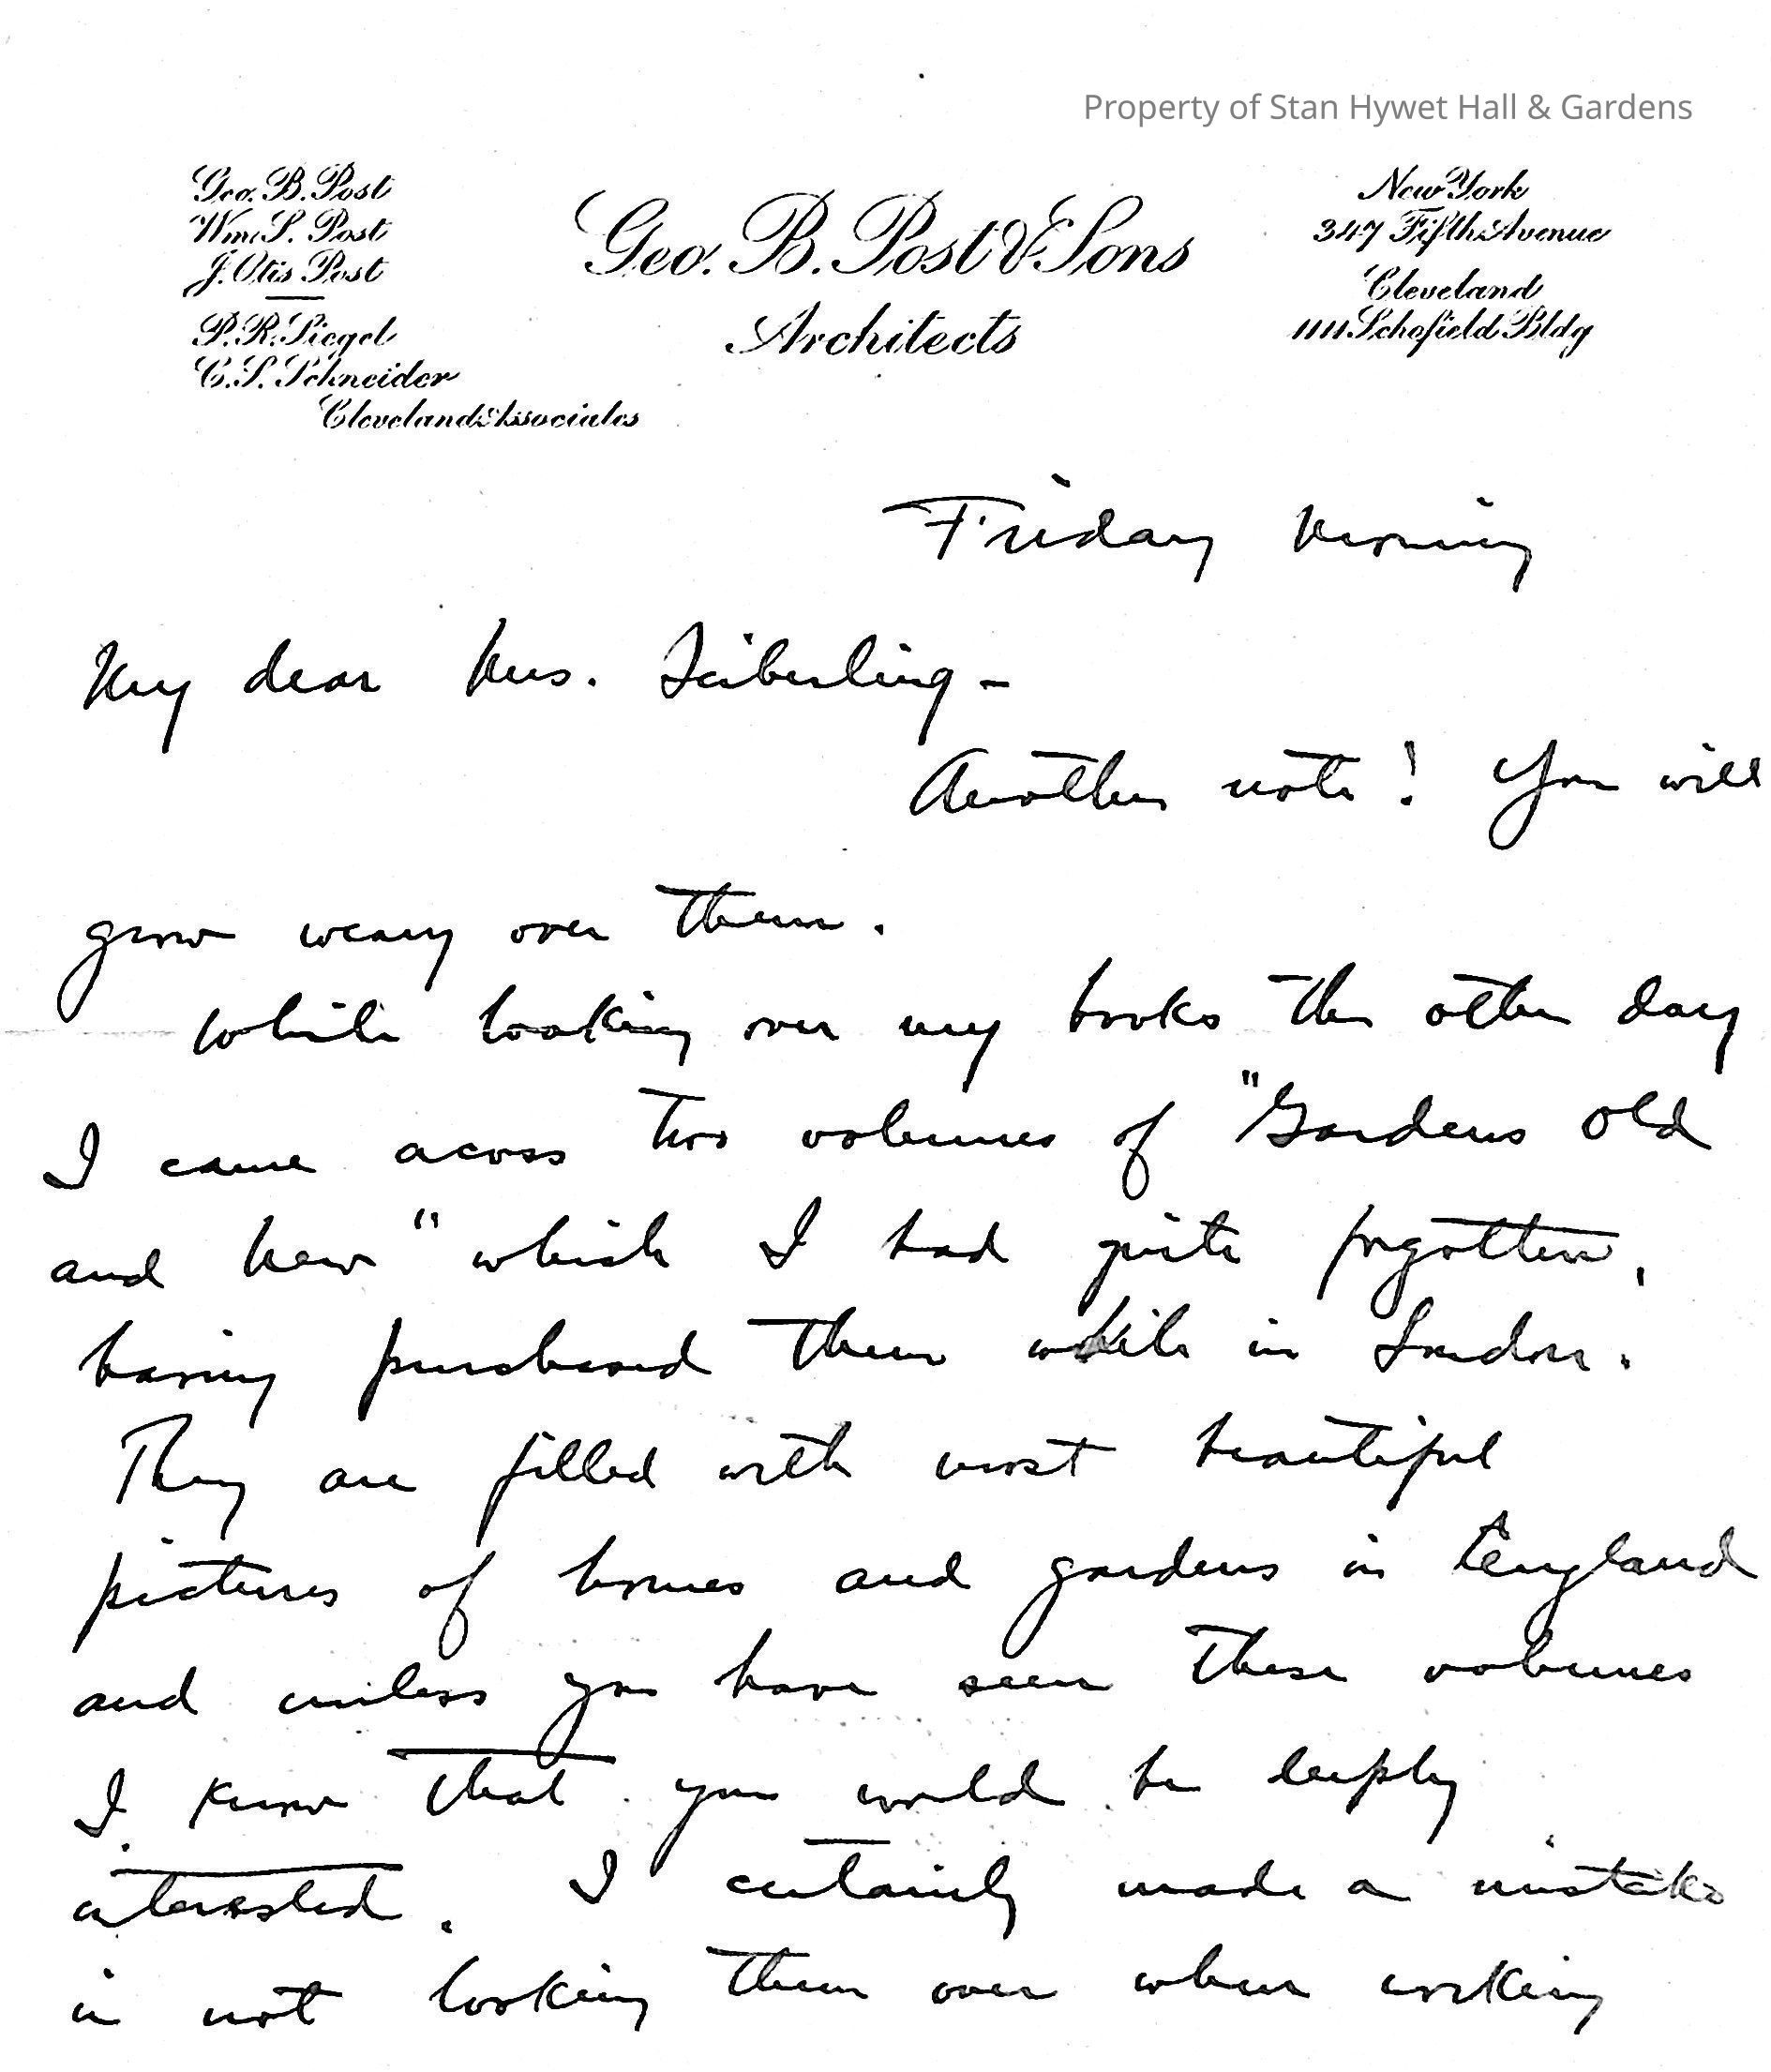 Property of Stan Hywet Hall & Gardens
Geo. B. Post
Wm. S. Post
J. Otis Post
P. R. Siegel
C. S. Schneider
Cleveland Associates
Geo. B. Post & Sons
Architects
New York
347 Fifth Avenue
Cleveland
1111 Schofield Bldg
Friday Morning
My dear Mrs. Seiberling -
Another note! You will
grow weary over them.
While looking over my books the other day
I came across two volumes of "Gardens Old
and New" which I had quite forgotten,
having purchased them while in London.
They are filled with most beautiful
pictures of homes and gardens in England
and unless you have seen these volumes
I know that you would be deeply
interested. I certainly made a mistake
in not looking them over when working